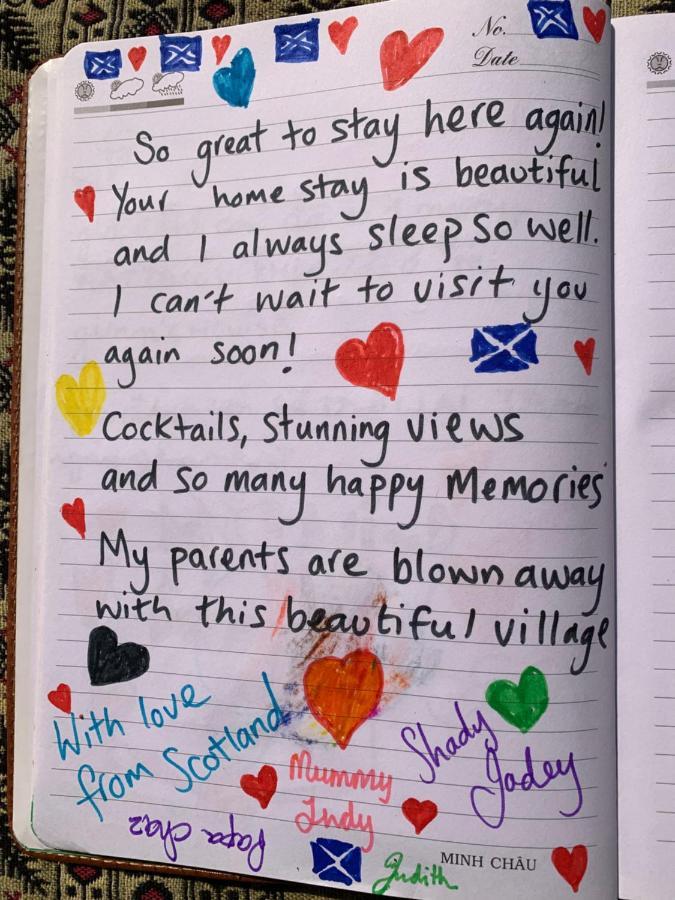 No.
Date
So great to stay here again!
Your home stay is beautiful
and I always sleep so well.
I can't wait to visit you
again soon!
Cocktails, stunning views
and so many happy Memories
My parents are blown away
with this beautiful village
With love
from Scotland
Shady
Jadey
Mummy
Indy
Papa chaz
Judith
MINH CHÂU